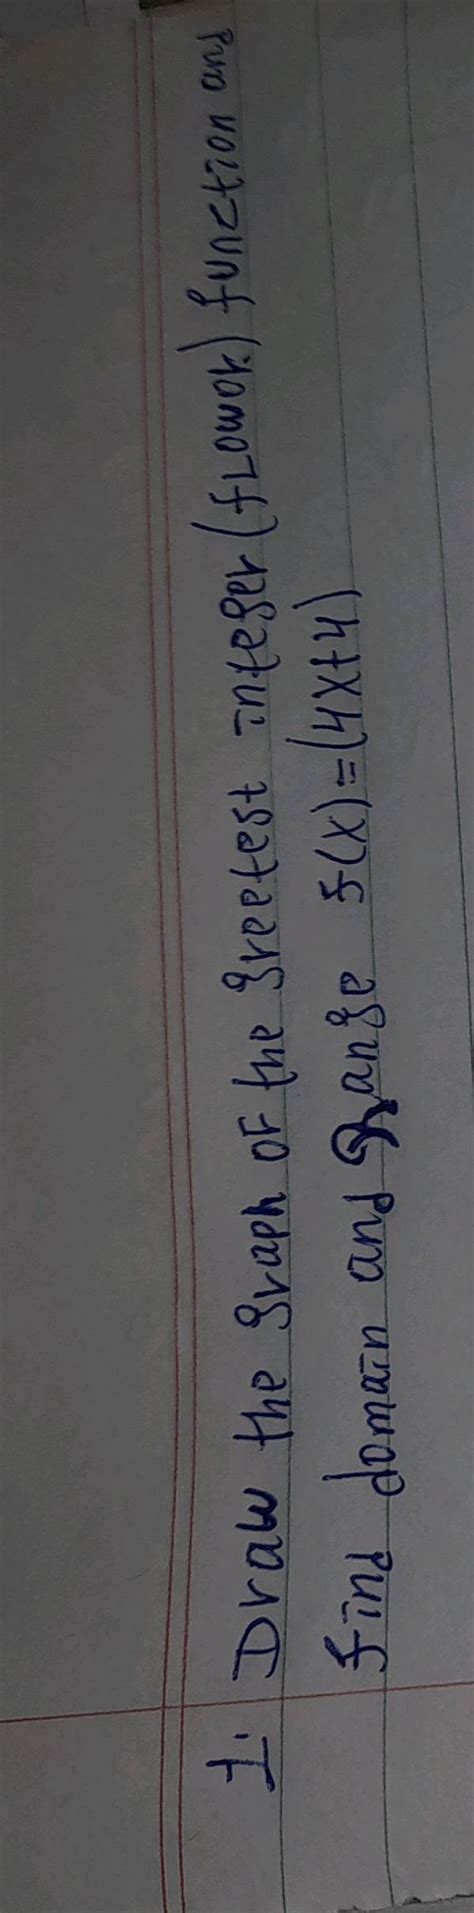 1. Draw the graph of the greetest integer(flower) function and
find domain and Range f(x)=(4x+4)